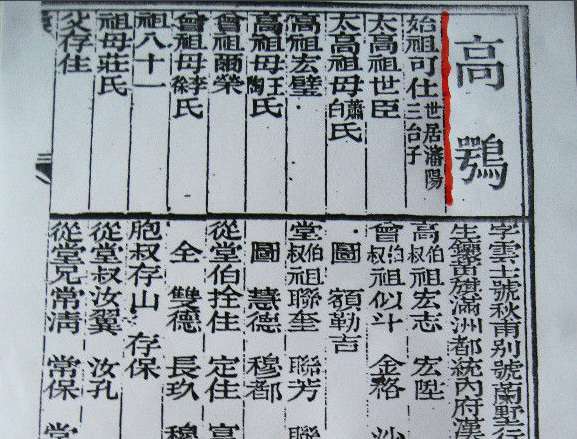 高鶚
始祖可住 世居瀋陽三台子
太高祖世臣
太高祖母蕭白氏
高祖宏璧
高祖母王陶氏
曾祖爾榮
曾祖母李徐氏
祖八十一
祖母莊氏
父存住
字雲士號秋甫別號蘭墅
生鑲黃旗滿洲都統內府漢
高伯叔祖宏志 宏陞
曾伯叔祖似斗 金 沙
圖 額勒吉
堂伯叔祖聯奎 聯芳 聯
圖 慧德 穆都
從堂伯拴住 定住 富
仝 雙德 長玖 穆
胞叔存山 存保
從堂叔汝翼 汝孔
從堂兄常清 常保 常